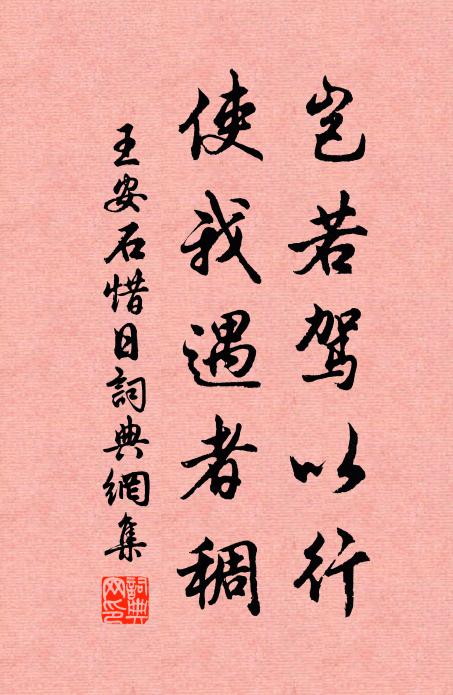 豈若駕以行
使我遇者稠
王安石惜日詞典網集
詞典
網印